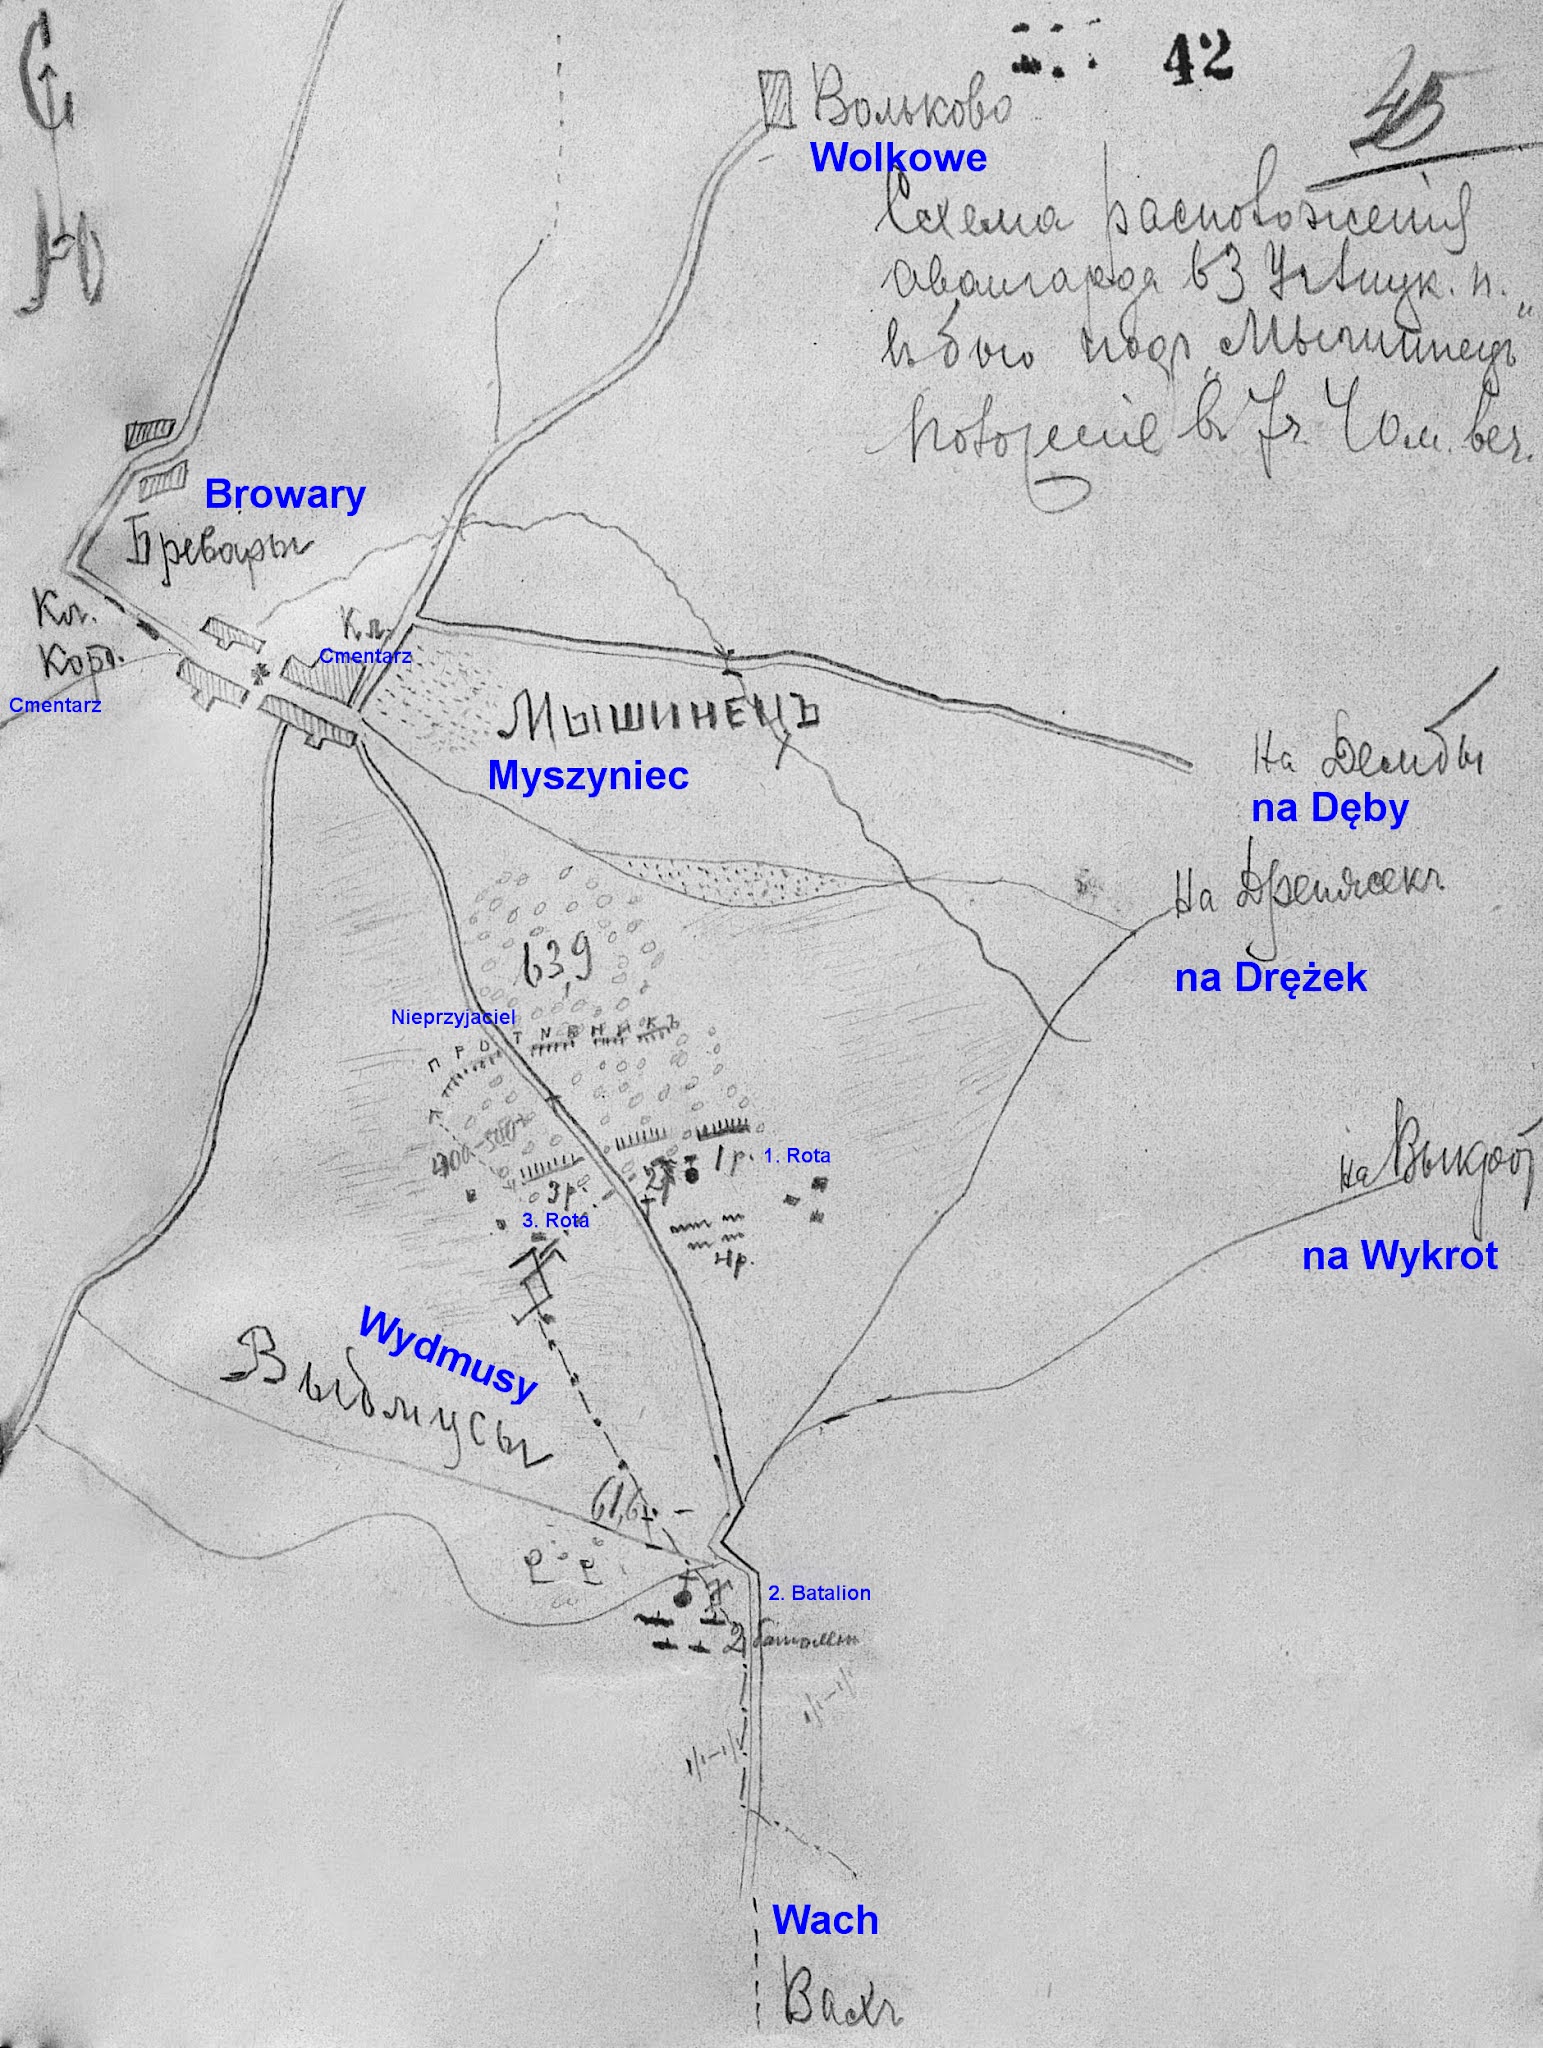 С
Ю
42
45
Вольково
Wolkowe
Схема расположенія
авангарда
въ бою подъ „Мышинецъ"
Положеніе въ 7ч 40м. веч.
Browary
Бровары
Кл.
Кл.
Cmentarz
Cmentarz
Мышинецъ
Myszyniec
На Дембы
na Dęby
На Дренжекъ
na Drężek
63,9
Nieprzyjaciel
ПРОТИВНИКЪ
1р.
1. Rota
2р
3р.
3. Rota
4р.
на Выкротъ
na Wykrot
Wydmusy
Выдмусы
61,6
2. Batalion
2 баталіон
Wach
Вахъ